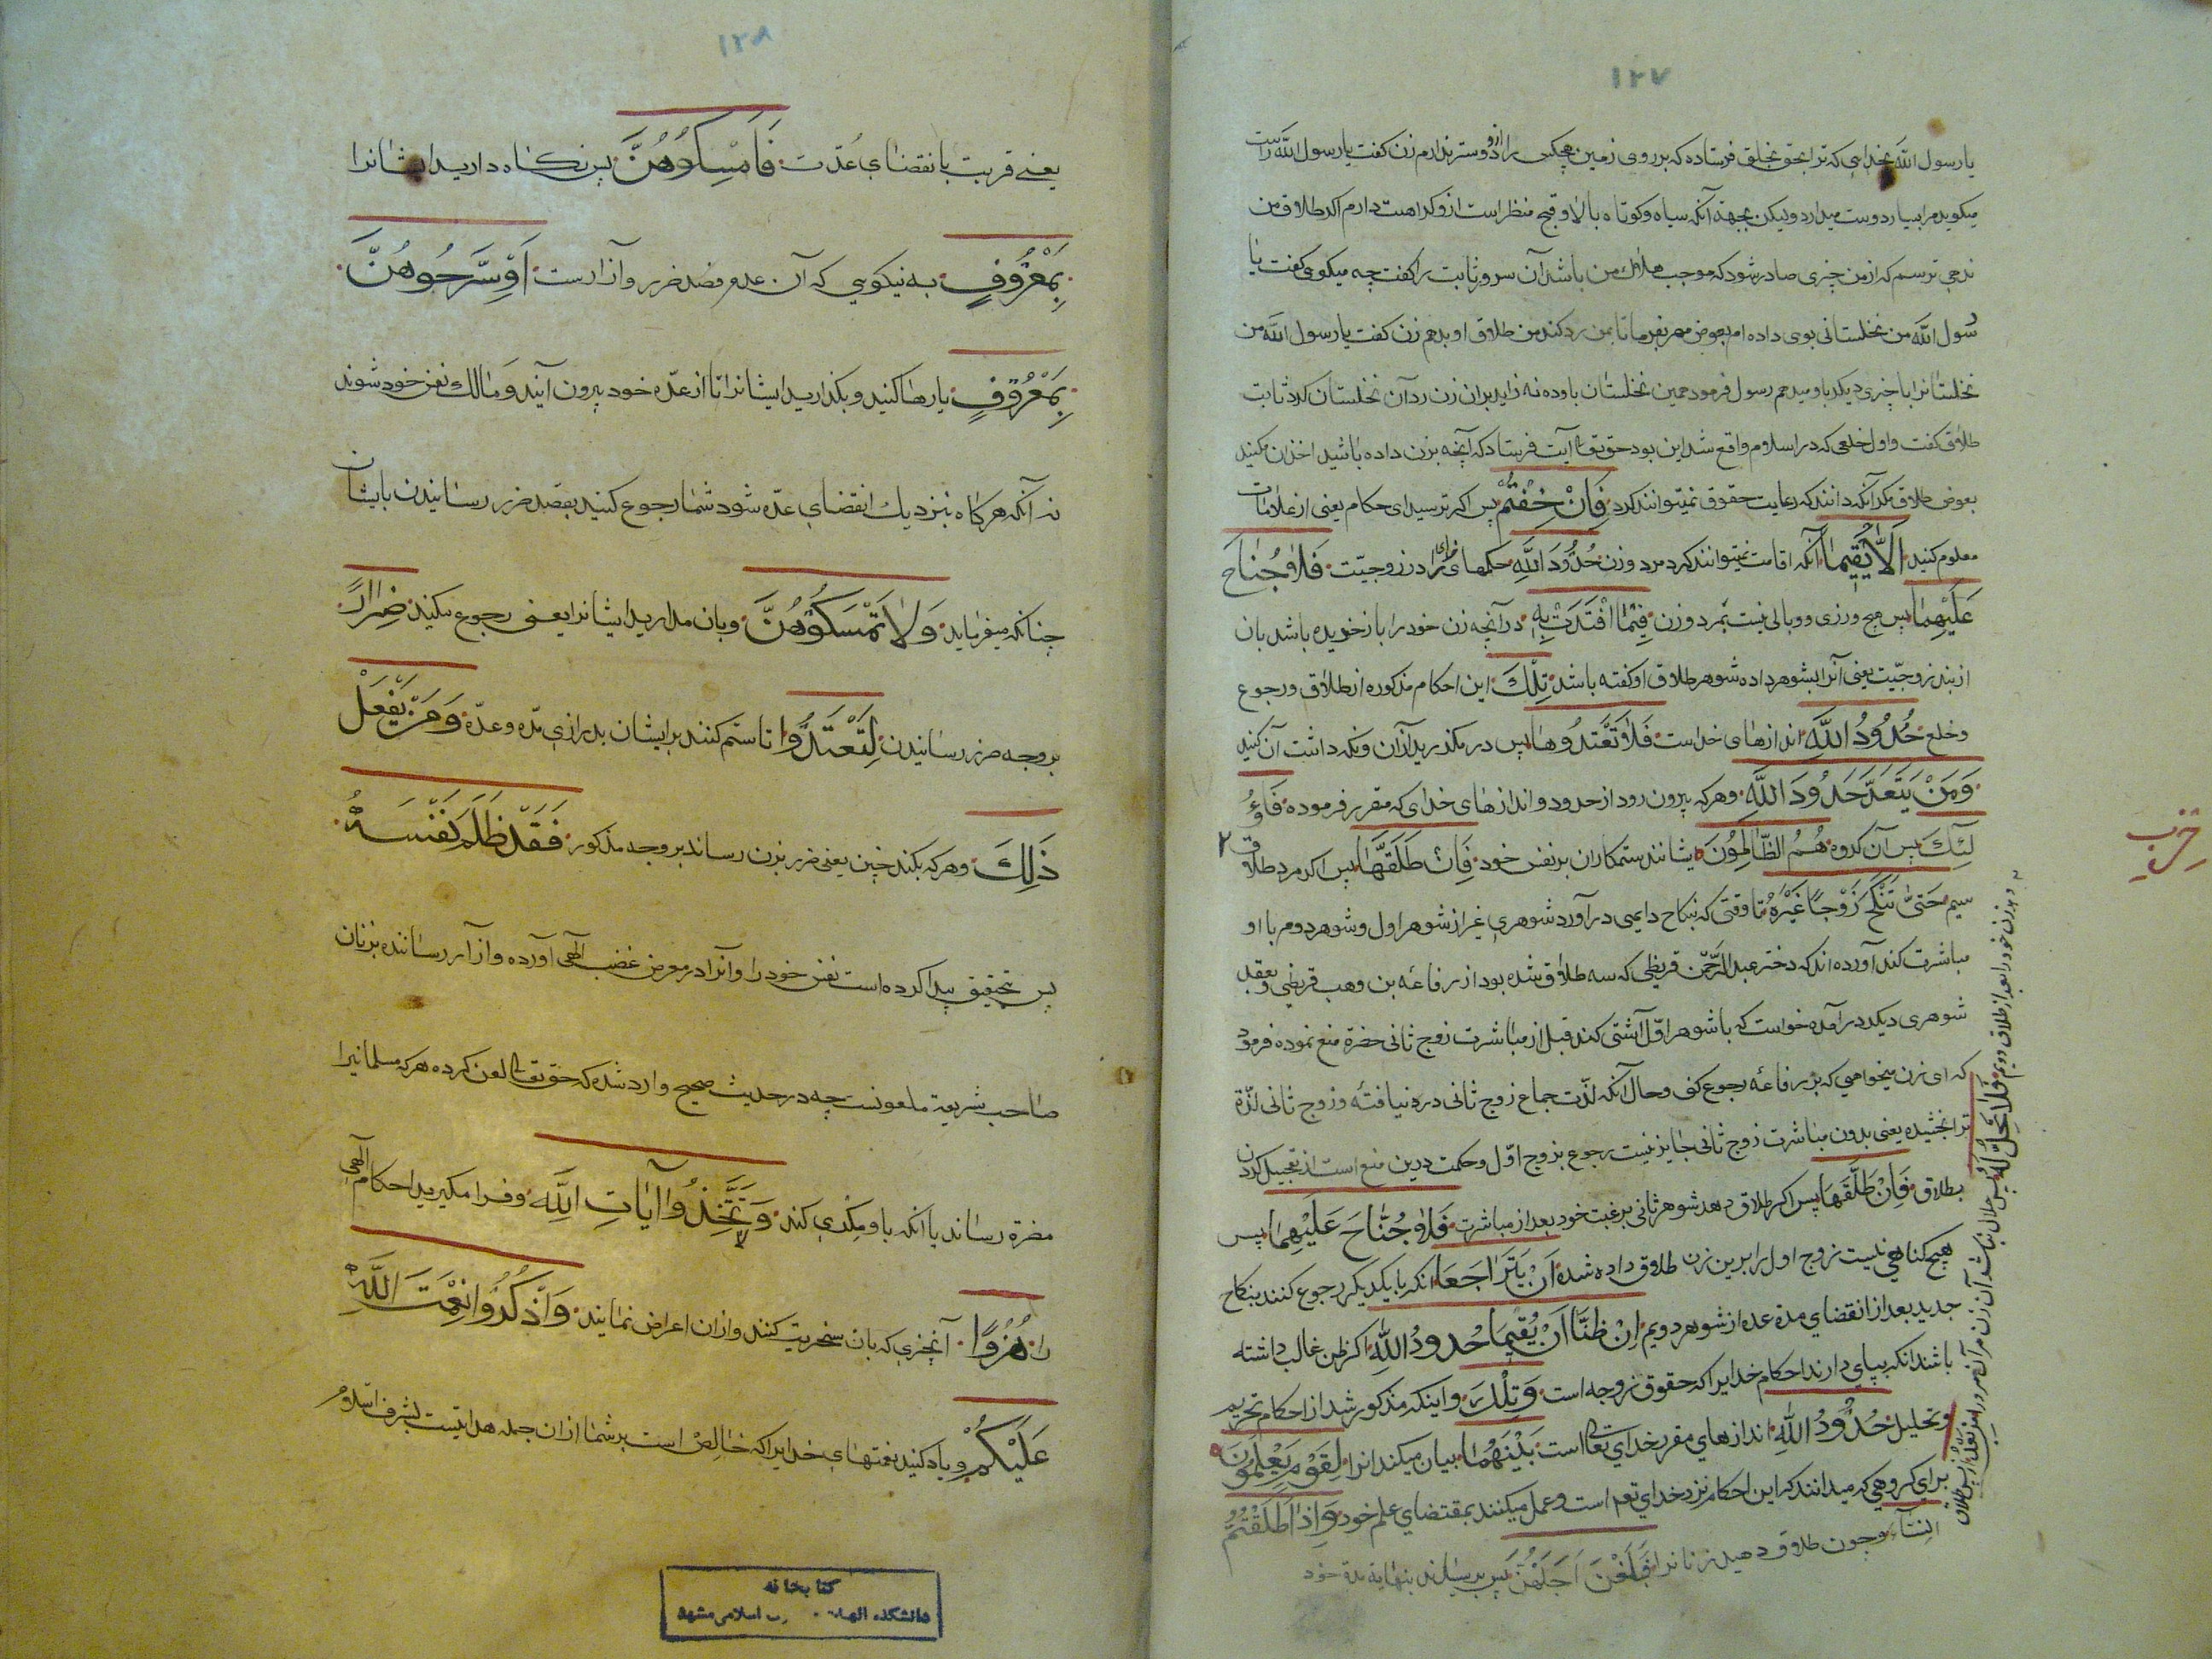 ۱۲۷
یا رسول الله بخدایی که ترا بحق بخلق فرستاده که بر روی زمین هیچکس را ازو دوستر ندارم زن کفت یا رسول الله راست
میکوید مرا بسیار دوست میدارد ولیکن بجهة آنکه سیاه و کوتاه بالا و قبیح منظر است ازو کراهت دارم اکر طلاق من
ندهی ترسم که از من چیزی صادر شود که موجب هلاک من باشد آن سرور ثابت را کفت چه میکویی کفت یا
رسول الله من نخلستانی بوی داده ام بعوض مهر بفرما تا بمن رد کند من طلاق او بدهم زن کفت یا رسول الله من
نخلستانرا با چیزی دیکر باو میدهم رسول فرمود همین نخلستان باو ده نه زاید بران زن رد آن نخلستان کرد ثابت
طلاق کفت و اول خلعی که در اسلام واقع شد این بود حق تعالی آیت فرستاد که آنچه بزن داده باشید اخذ ان مکنید
بعوض طلاق مکر آنکه دانند که رعایت حقوق نمیتوانند کرد فَاِنْ خِفْتُمْ پس اکر ترسید ای حکام یعنی از علامات
معلوم کنید اَلاّٰ یُقِیمٰا آنکه اقامت نمیتوانند کرد مرد و زن حُدُودَ اللهِ حکمهای خدایرا در زوجیّت فَلاٰ جُنٰاحَ
عَلَیْهِمٰا پس هیچ وزری و وبالی نیست بمرد و زن فِیمٰا افْتَدَتْ بِهِ در آنچه زن خود را باز خریده باشد بان
از بند زوجیّت یعنی آنرا بشوهر داده شوهر طلاق او کفته باشد تِلْكَ این احکام مذکوره از طلاق و رجوع
و خلع حُدُودُ اللهِ اندازهای خداست فَلاٰ تَعْتَدُوهٰا پس در مکذرید ازان و نکه داشت آن کنید
وَمَنْ یَتَعَدَّ حُدُودَ اللهِ وهر که بیرون رود از حدود و اندازهای خدای که مقرر فرموده فَاُو
لٰئِكَ پس آن کروه هُمُ الظّٰالِمُونَ ایشانند ستمکاران بر نفس خود فَاِنْ طَلَّقَهٰا پس اکر مرد طلاق ۲
سیم حَتّیٰ تَنْکِحَ زَوْجًا غَیْرَهُ تا وقتی که نکاح دایمی در آورد شوهری غیر از شوهر اول و شوهر دوم با او
مباشرت کند آورده اند که دختر عبد الرحمن قریظی که سه طلاق شده بود از رفاعه بن وهب قریظی و بعقد
شوهری دیکر در آمده خواست که با شوهر اوّل آشتی کند قبل از مباشرت زوج ثانی حضرة منع نموده فرمود
که ای زن میخواهی که بر رفاعه رجوع کنی و حال آنکه لذّت جماع زوج ثانی در نیافتهٔ و زوج ثانی لذّة
ترا نچشیده یعنی بدون مباشرت زوج ثانی جایز نیست رجوع بزوج اوّل و حکمت درین منع است از تعجیل کردن
بطلاق فَاِنْ طَلَّقَهٰا پس اکر طلاق دهد شوهر ثانی برغبت خود بعد از مباشرت فَلاٰ جُنٰاحَ عَلَیْهِمٰا پس
هیچ کناهی نیست زوج اول را برین زن طلاق داده شده اَنْ یَتَرٰاجَعٰا انکه بایکدیکر رجوع کنند بنکاح
جدید بعد از انقضای مدة عده از شوهر دویم اِنْ ظَنّٰا اَنْ یُقِیمٰا حُدُودَ اللهِ اکر ظن غالب داشته
باشند انکه بپای دارند احکام خدایرا که حقوق زوجه است وَتِلْكَ و اینکه مذکور شد از احکام تحریم
و تحلیل حُدُودُ اللهِ اندازهای مقرر خدای تعالی است یُبَیِّنُهٰا بیان میکند انرا لِقَوْمٍ یَعْلَمُونَ
برای کروهی که میدانند که این احکام نزد خدای تعم است و عمل میکنند بمقتضای علم خود وَاِذٰا طَلَّقْتُمُ
النِّسٰآءَ و چون طلاق دهید زنانرا فَبَلَغْنَ اَجَلَهُنَّ پس برسانند بنهایة مدة خود
دهد زن خود را بعد از طلاق دویم فَلاٰ تَحِلُّ لَهُ پس حلال نباشد آن زن مر آن مرد را مِنْ بَعْدُ از پس طلاق
حزب
۱۲۸
یعنی قریب بانقضای عُدّت فَاَمْسِکُوهُنَّ پس نکاه دارید ایشانرا
بِمَعْرُوفٍ به نیکویی که آن عدم قصد ضرر و آزارست اَوْ سَرِّحُوهُنَّ
بِمَعْرُوفٍ یا رها کنید و بکذارید ایشانرا تا از عدّه خود بیرون آیند و مالك نفس خود شوند
نه آنکه هر کاه بنزدیك انقضای عدّه شود شما رجوع کنید بقصد ضرر رسانیدن بایشان
چنانکه میفرماید وَلاٰ تُمْسِکُوهُنَّ و بان مدارید ایشانرا یعنی رجوع مکنید ضِرٰارًا
بر وجه ضرر رسانیدن لِتَعْتَدُوا تا ستم کنند بر ایشان بدرازی مدّه و عدّه وَمَنْ یَفْعَلْ
ذٰلِكَ و هر که بکند چنین یعنی ضرر بزن رساند بر وجه مذکور فَقَدْ ظَلَمَ نَفْسَهُ
پس بتحقیق بیداکرده است نفس خود را و آنرا در معرض غضب آلهی آورده و از آر رساننده بزنان
صاحب شریعة ملعونست چه در حدیث صحیح وارد شده که حق تعالی لعن کرده هر که مسلمانیرا
مضرة رساند یا آنکه باو مکری کند وَلاٰ تَتَّخِذُوا آیٰاتِ اللهِ و فرا مکیرید احکام آلهی
را هُزُوًا آنچیزی که بان سخریت کنند و ازان اعراض نمایند وَاذْکُرُوا نِعْمَتَ اللهِ
عَلَیْکُمْ و یاد کنید نعمتهای خدایرا که خالص است بر شما ازان جمله هدایتست بشرف اسلام
کتابخانه
دانشکده الهیات اسلامی مشهد